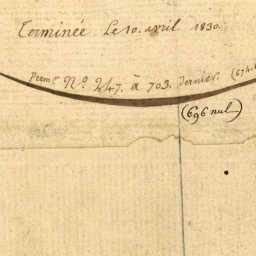 Terminée Le 10. avril 1830.
Prem.r N.o 247. à 703. Dernier. (674.
(696 nul)